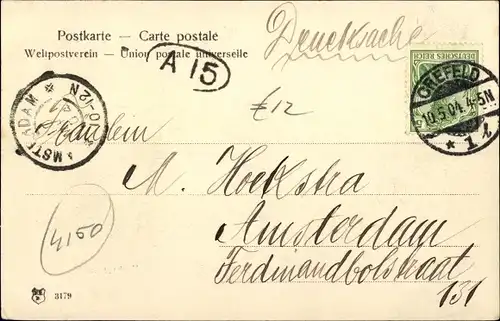 Postkarte – Carte postale
Weltpostverein – Union postale universelle
Drucksache
A 15
DEUTSCHES REICH
CREFELD
10.5.04. 4-5N
* 1 l
AMSTERDAM
10-12N
£12
Fräulein
M. Hoekstra
Amsterdam
Ferdinandbolstraat
131
4150
3179